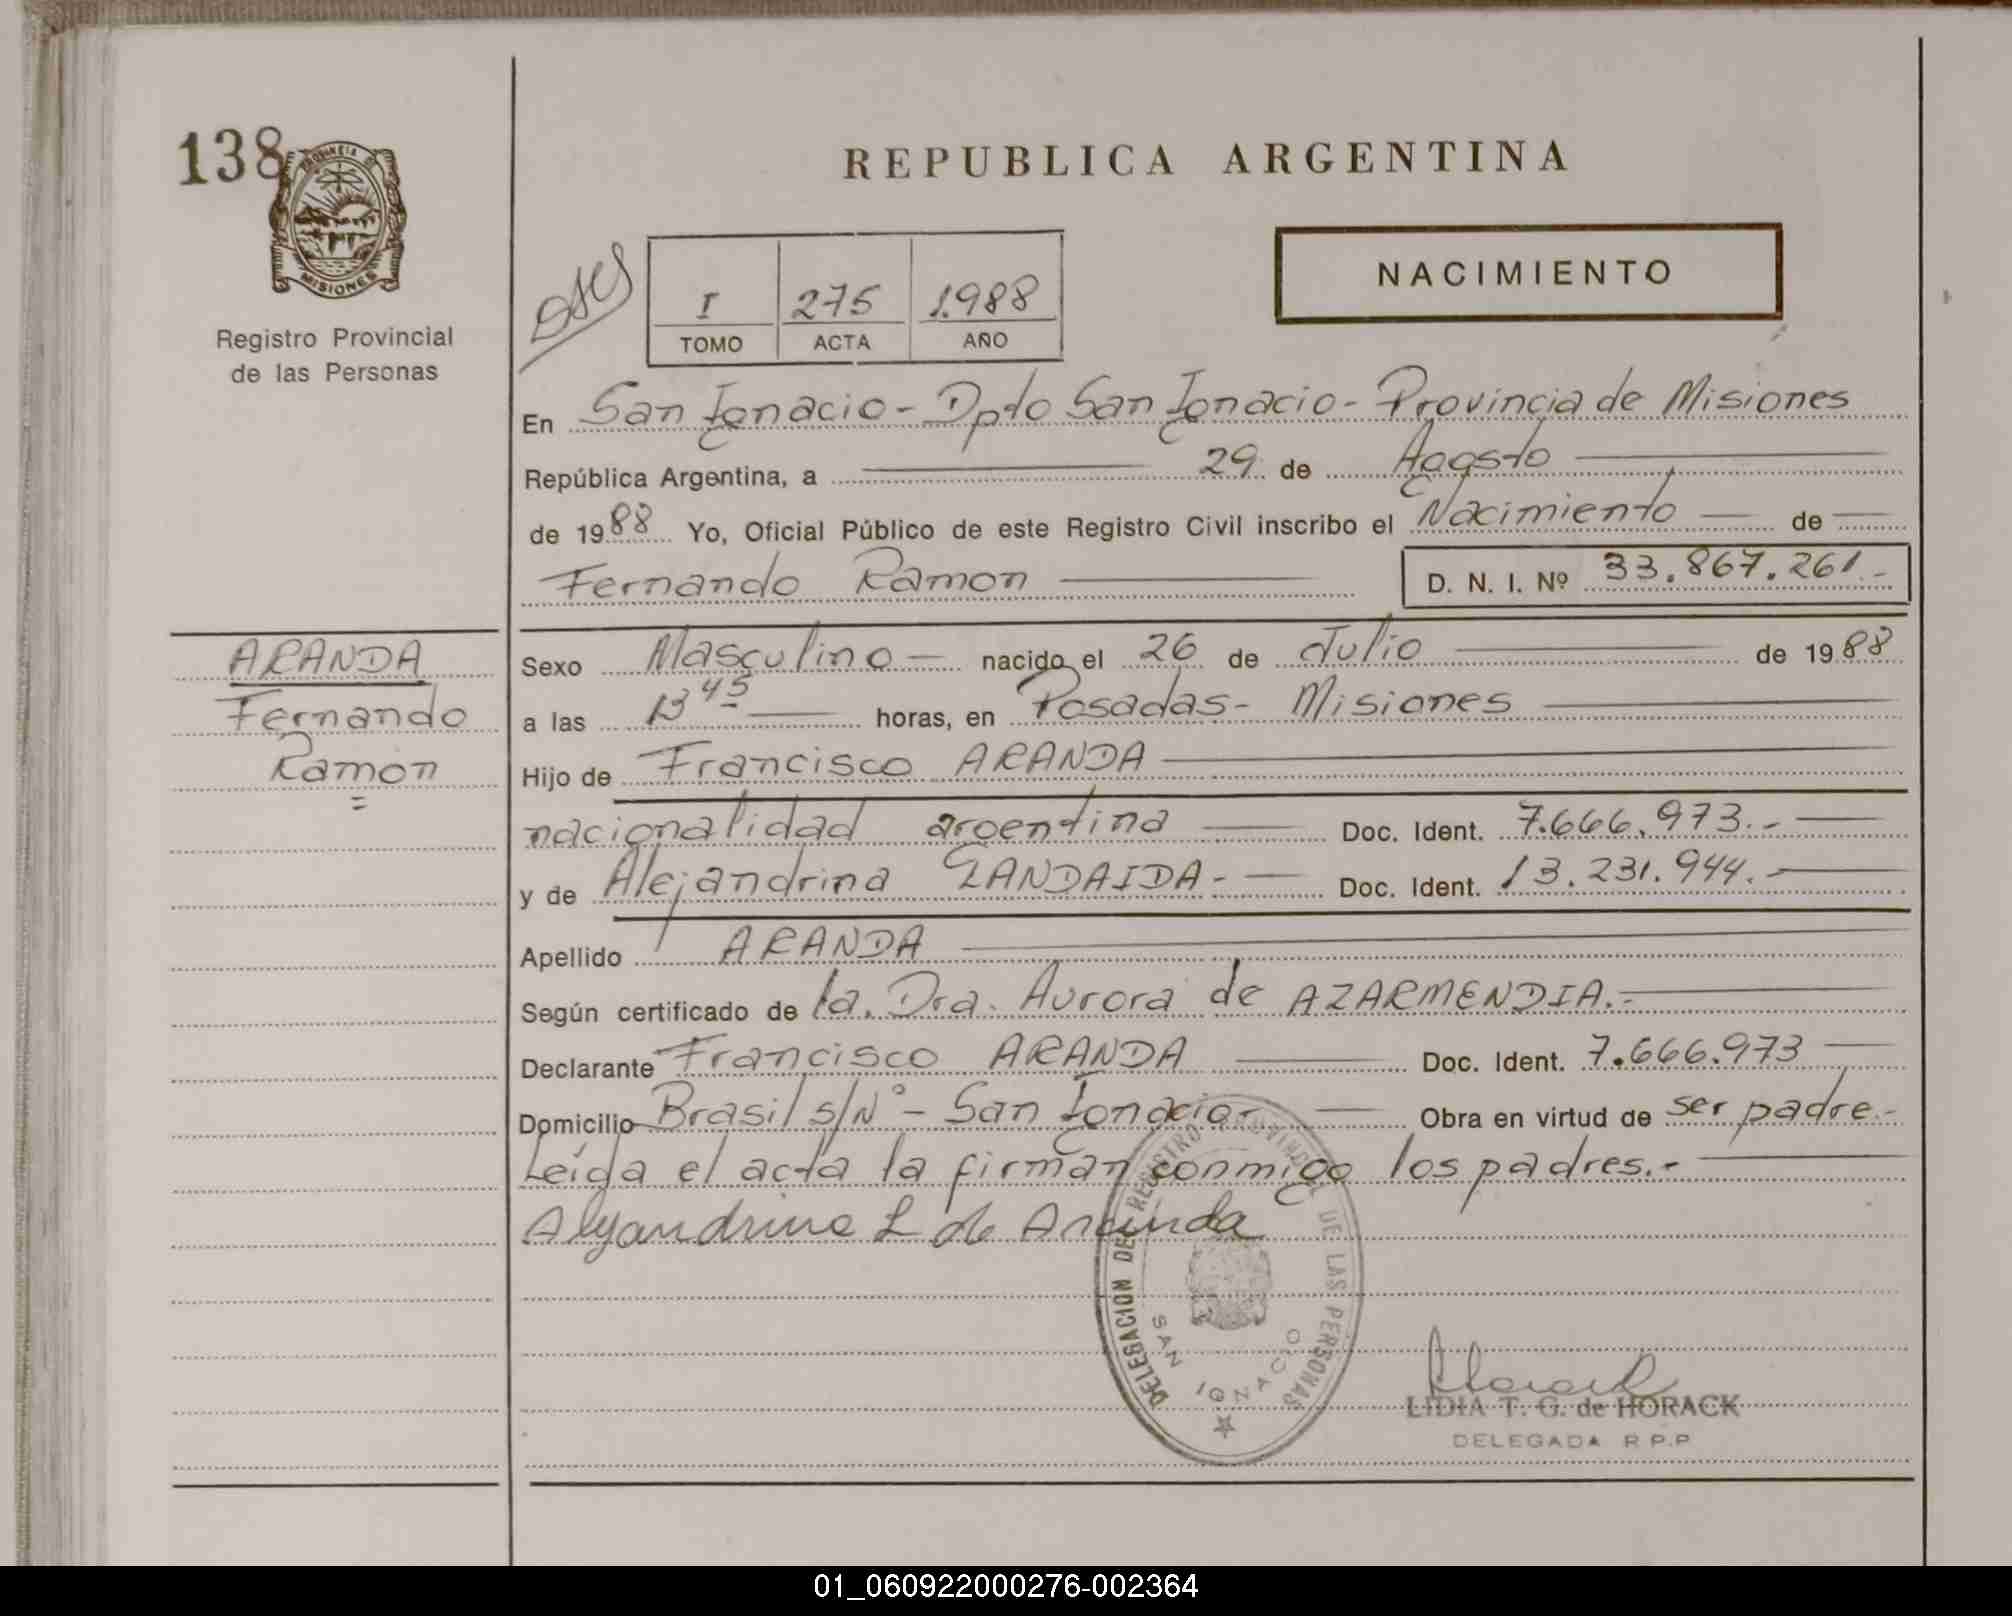 138
PROVINCIA DE MISIONES
Registro Provincial
de las Personas
REPUBLICA ARGENTINA
NACIMIENTO
I 275 1.988
TOMO ACTA AÑO
En San Ignacio - Dpto San Ignacio - Provincia de Misiones
República Argentina, a 29 de Agosto
de 1988 Yo, Oficial Público de este Registro Civil inscribo el Nacimiento de
Fernando Ramon D. N. I. Nº 33.867.261.-
ARANDA
Fernando
Ramon
Sexo Masculino nacido el 26 de Julio de 1988
a las 13 45 horas, en Posadas - Misiones
Hijo de Francisco ARANDA
nacionalidad argentina Doc. Ident. 7.666.973.-
y de Alejandrina LANDAIDA.- Doc. Ident. 13.231.944.-
Apellido ARANDA
Según certificado de la Dra. Aurora de AZARMENDIA.-
Declarante Francisco ARANDA Doc. Ident. 7.666.973
Domicilio Brasil s/Nº - San Ignacio - Obra en virtud de ser padre.-
Leída el acta la firman conmigo los padres.-
Alejandrina L de Aranda
DELEGACION DEL REGISTRO PROVINCIAL DE LAS PERSONAS
SAN IGNACIO
Horack
LIDIA T. G. de HORACK
DELEGADA R.P.P
01_060922000276-002364